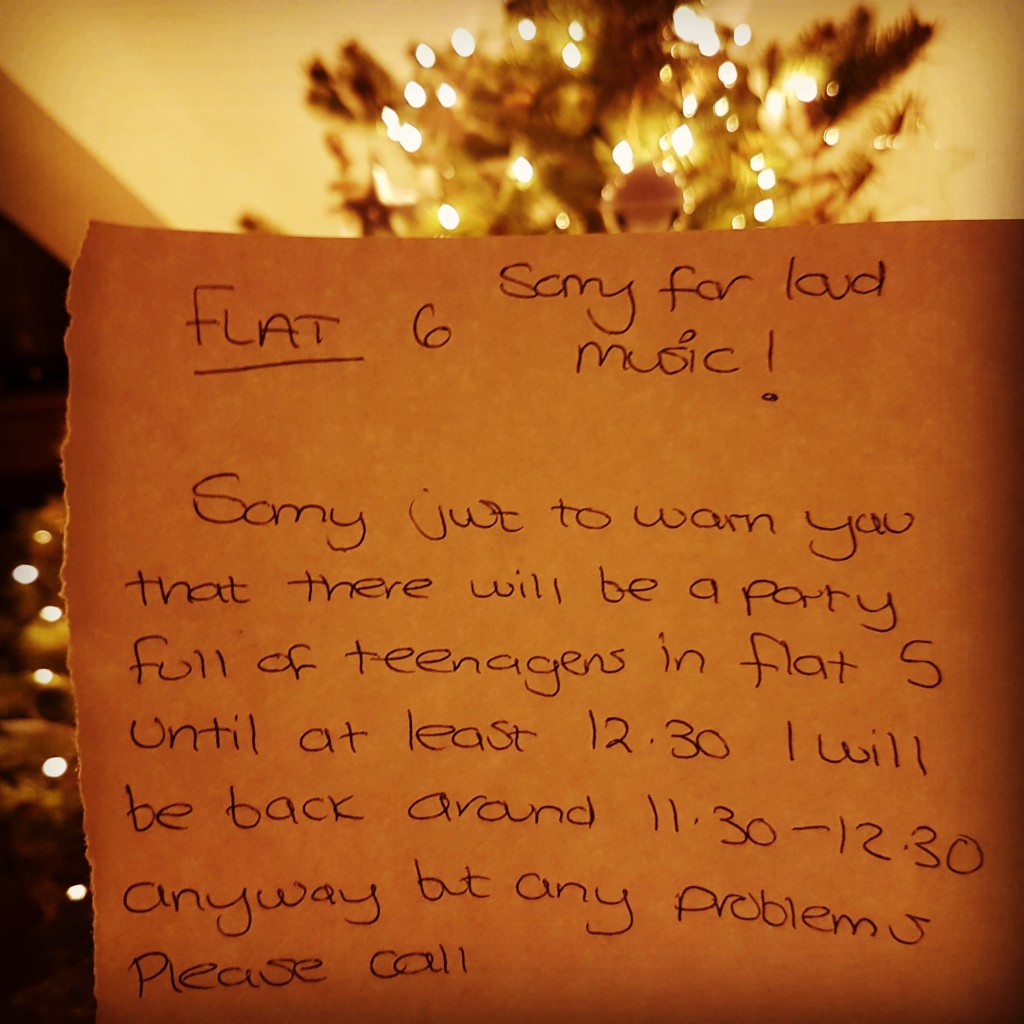 FLAT 6
Sorry for loud
music!
Sorry just to warn you
that there will be a party
full of teenagers in flat 5
until at least 12.30 I will
be back around 11.30-12.30
anyway but any problems
Please call